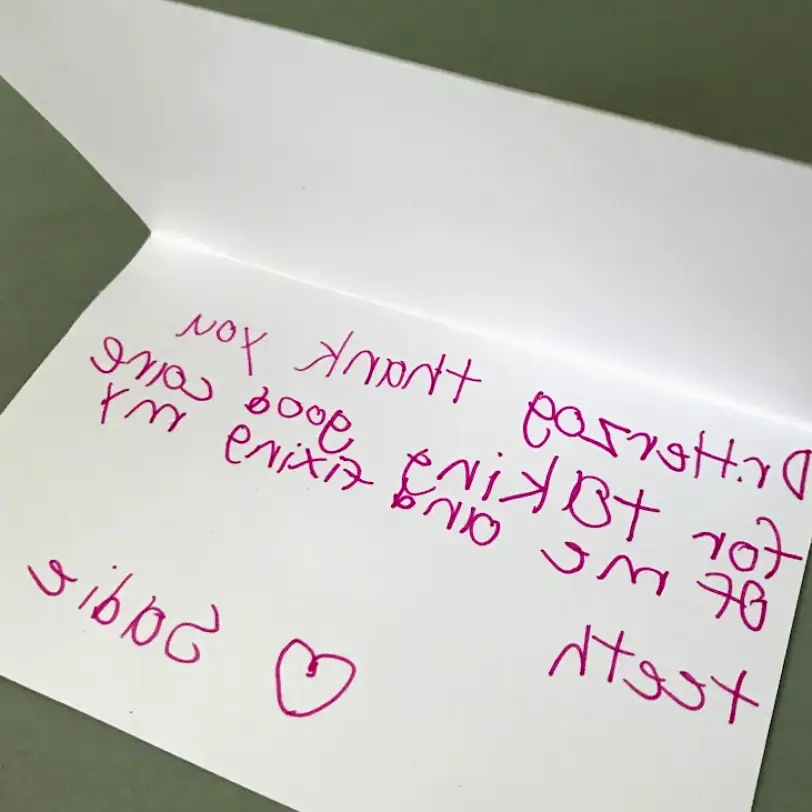 Dr. Herzog thank you
for taking good care
of me and fixing my
teeth
♡ Sadie